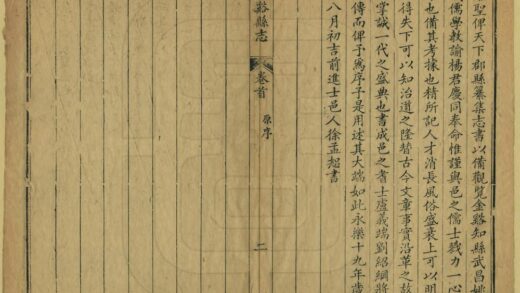 聖俾天下郡縣纂集志書以備觀覽金谿知縣武昌姚
儒學教諭楊君慶同奉命惟謹與邑之儒士戮力一心
也備其考據也精所記人才消長風俗盛衰上可以明
得失下可以知治道之隆替古今文章事實沿革之故
掌誠一代之盛典也書成邑之耆士盛義端劉紹綱將
傳而俾予為序予是用述其大端如此永樂十九年歲
八月初吉前進士邑人徐孟恕書
谿縣志
卷首
原序
二